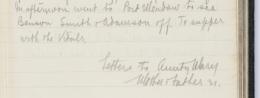 in afternoon went to Port Meadow to see
Benson Smith & Adamson off. To supper
with the
Letters to Aunty Mary
Mother & Father 21.